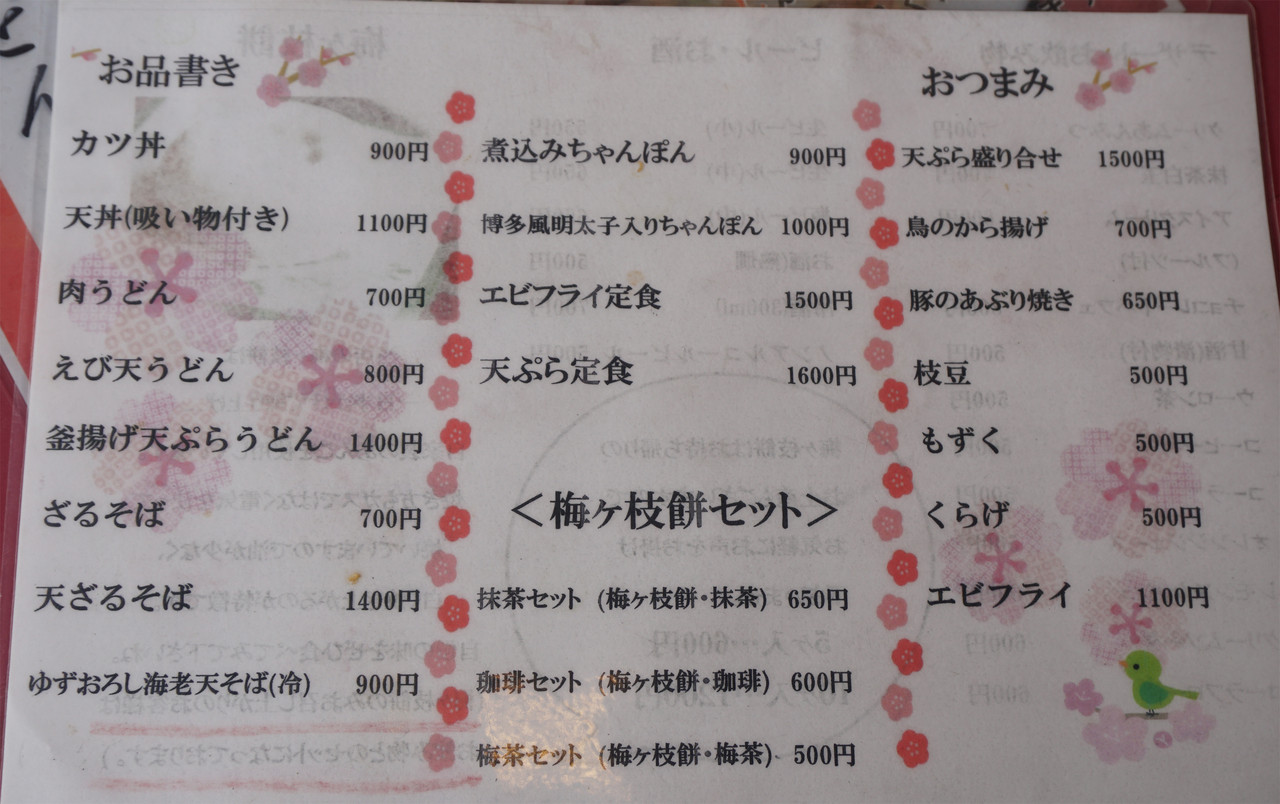 お品書き
カツ丼 900円
天丼(吸い物付き) 1100円
肉うどん 700円
えび天うどん 800円
釜揚げ天ぷらうどん 1400円
ざるそば 700円
天ざるそば 1400円
ゆずおろし海老天そば(冷) 900円
煮込みちゃんぽん 900円
博多風明太子入りちゃんぽん 1000円
エビフライ定食 1500円
天ぷら定食 1600円
<梅ヶ枝餅セット>
抹茶セット (梅ヶ枝餅・抹茶) 650円
珈琲セット (梅ヶ枝餅・珈琲) 600円
梅茶セット (梅ヶ枝餅・梅茶) 500円
おつまみ
天ぷら盛り合せ 1500円
鳥のから揚げ 700円
豚のあぶり焼き 650円
枝豆 500円
もずく 500円
くらげ 500円
エビフライ 1100円